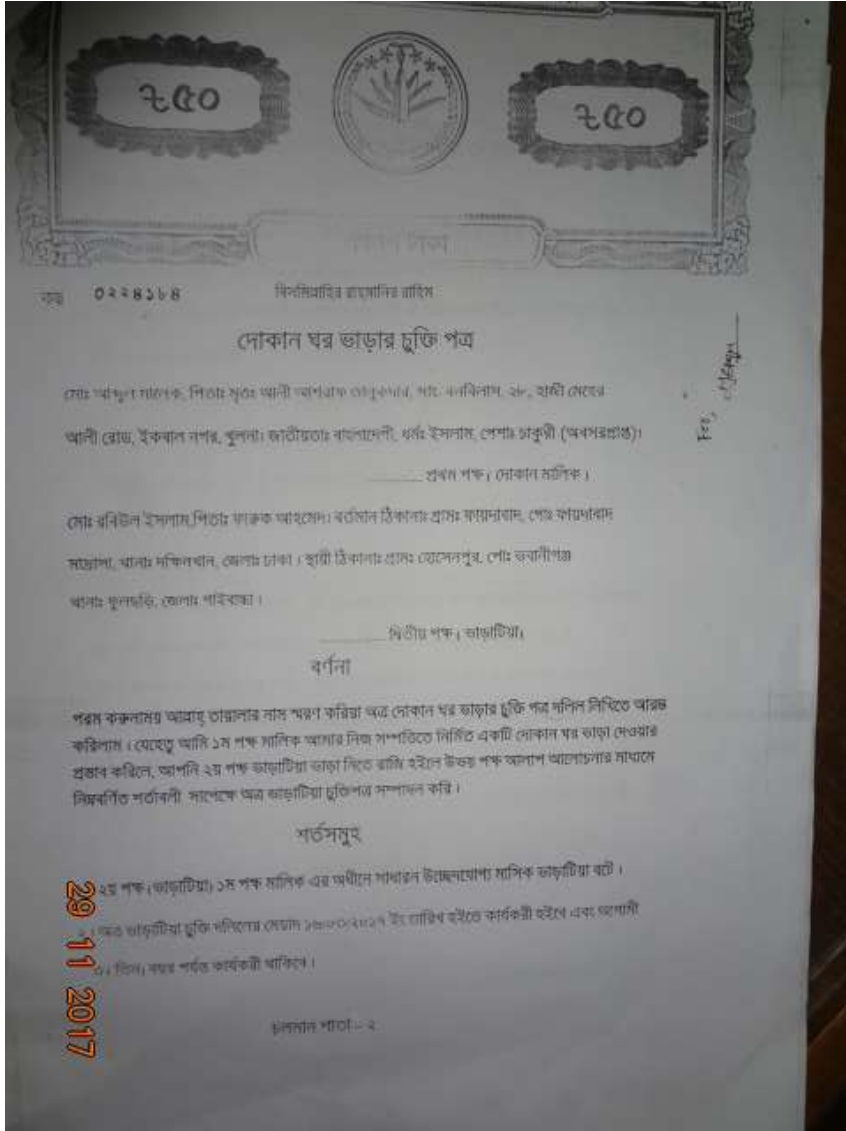 ২৫০
২৫০
০২২৪১৮৪
বিসমিল্লাহির রাহমানির রাহিম
দোকান ঘর ভাড়ার চুক্তি পত্র
মোঃ আব্দুল মালেক, পিতাঃ মৃতঃ আলী আশরাফ তালুকদার, সাং- বনবিলাস, ২৮, হাজী মেহের
আলী রোড, ইকবাল নগর, খুলনা। জাতীয়তাঃ বাংলাদেশী, ধর্মঃ ইসলাম, পেশাঃ চাকুরী (অবসরপ্রাপ্ত)।
............ প্রথম পক্ষ। দোকান মালিক।
মোঃ রবিউল ইসলাম,পিতাঃ ফারুক আহমেদ। বর্তমান ঠিকানাঃ গ্রামঃ ফায়দাবাদ, পোঃ ফায়দাবাদ
মাদ্রাসা, থানাঃ দক্ষিনখান, জেলাঃ ঢাকা। স্থায়ী ঠিকানাঃ গ্রামঃ হোসেনপুর, পোঃ ভবানীগঞ্জ
থানাঃ ফুলছড়ি, জেলাঃ গাইবান্ধা।
............ দ্বিতীয় পক্ষ। ভাড়াটিয়া।
বর্ণনা
পরম করুনাময় আল্লাহ্ তায়ালার নাম স্মরণ করিয়া অত্র দোকান ঘর ভাড়ার চুক্তি পত্র দলিল লিখিতে আরম্ভ
করিলাম। যেহেতু আমি ১ম পক্ষ মালিক আমার নিজ সম্পত্তিতে নির্মিত একটি দোকান ঘর ভাড়া দেওয়ার
প্রস্তাব করিলে, আপনি ২য় পক্ষ ভাড়াটিয়া ভাড়া নিতে রাজি হইলে উভয় পক্ষ আলাপ আলোচনার মাধ্যমে
নিম্নবর্ণিত শর্তাবলী সাপেক্ষে অত্র ভাড়াটিয়া চুক্তিপত্র সম্পাদন করি।
শর্তসমুহ
২য় পক্ষ (ভাড়াটিয়া) ১ম পক্ষ মালিক এর অধীনে সাধারন উচ্ছেদযোগ্য মাসিক ভাড়াটিয়া বটে।
২। অত্র ভাড়াটিয়া চুক্তি দলিলের মেয়াদ ইং তারিখ হইতে কার্যকরী হইবে এবং আগামী
৩। তিন। বছর পর্যন্ত কার্যকরী থাকিবে।
চলমান পাতা – ২
29 11 2017